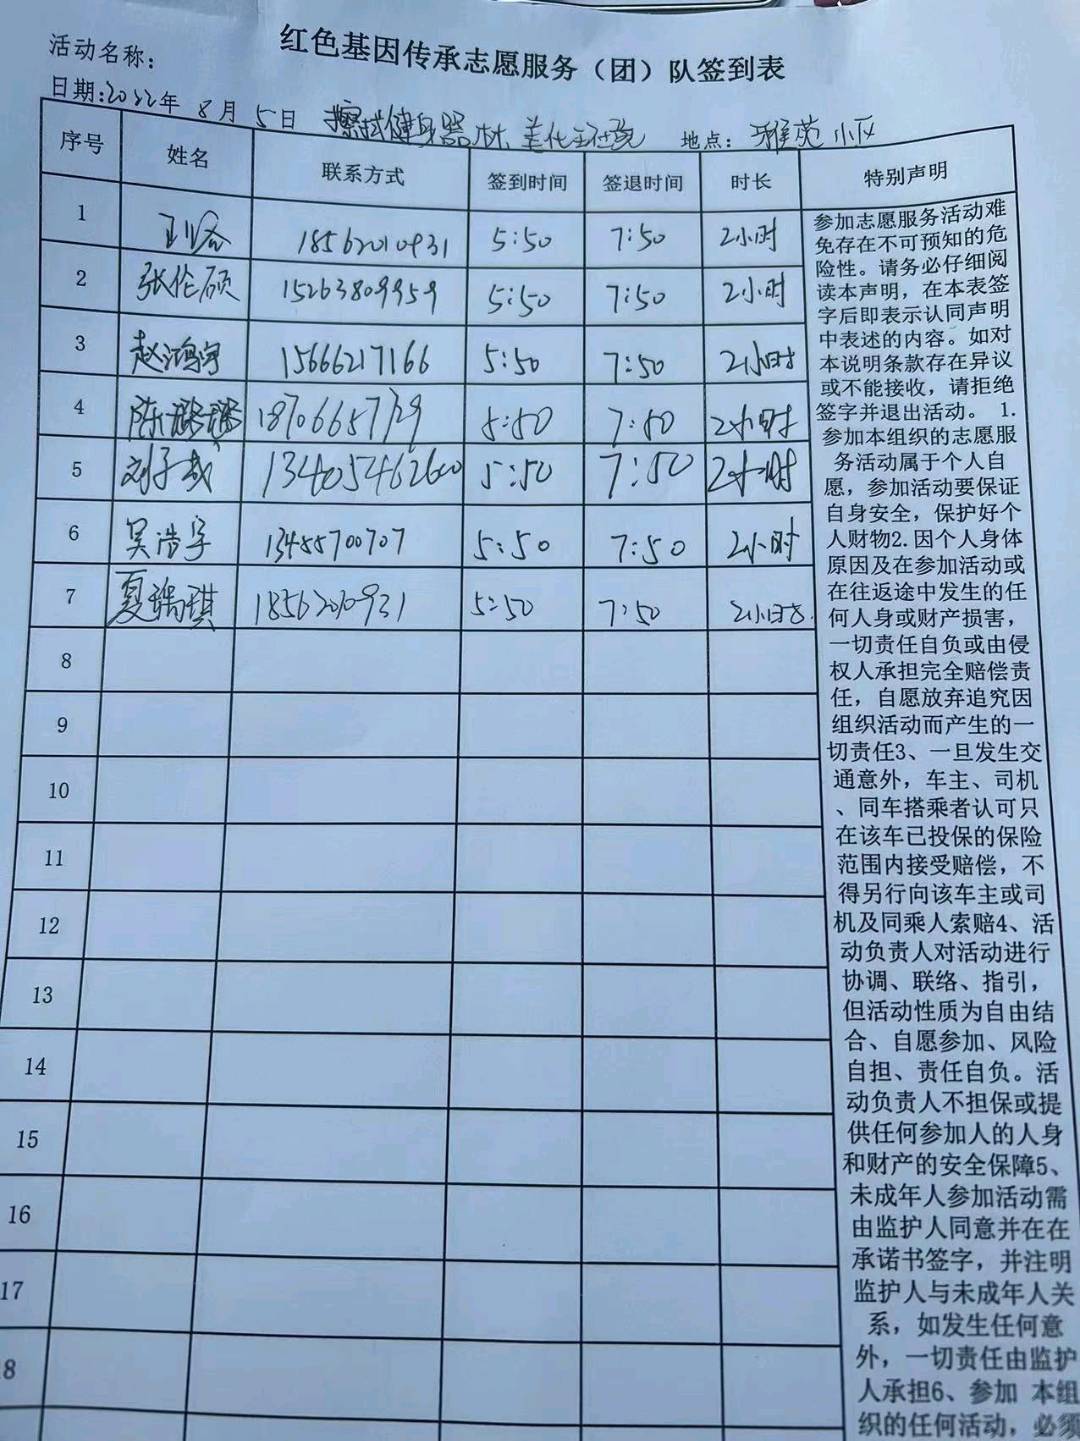 红色基因传承志愿服务（团）队签到表
活动名称：
日期:2022年 8月 5日 擦拭健身器材 美化 地点： 雅苑小区
序号 姓名 联系方式 签到时间 签退时间 时长 特别声明
1 18562010931 5:50 7:50 2小时
2 张伦硕 15263809959 5:50 7:50 2小时
3 赵鸿宇 15666217166 5:50 7:50 2小时
4 陈 5:50 7:50 2小时
5 刘子彧 5:50 7:50 2小时
6 吴浩宇 13455700707 5:50 7:50 2小时
7 夏瑞琪 18562010931 5:50 7:50 2小时
8
9
10
11
12
13
14
15
16
17
18
参加志愿服务活动难
免存在不可预知的危
险性。请务必仔细阅
读本声明，在本表签
字后即表示认同声明
中表述的内容。如对
本说明条款存在异议
或不能接收，请拒绝
签字并退出活动。 1.
参加本组织的志愿服
务活动属于个人自
愿，参加活动要保证
自身安全，保护好个
人财物2.因个人身体
原因及在参加活动或
在往返途中发生的任
何人身或财产损害，
一切责任自负或由侵
权人承担完全赔偿责
任，自愿放弃追究因
组织活动而产生的一
切责任3、一旦发生交
通意外，车主、司机
、同车搭乘者认可只
在该车已投保的保险
范围内接受赔偿，不
得另行向该车主或司
机及同乘人索赔4、活
动负责人对活动进行
协调、联络、指引，
但活动性质为自由结
合、自愿参加、风险
自担、责任自负。活
动负责人不担保或提
供任何参加人的人身
和财产的安全保障5、
未成年人参加活动需
由监护人同意并在在
承诺书签字，并注明
监护人与未成年人关
系，如发生任何意
外，一切责任由监护
人承担6、参加 本组
织的任何活动，必须